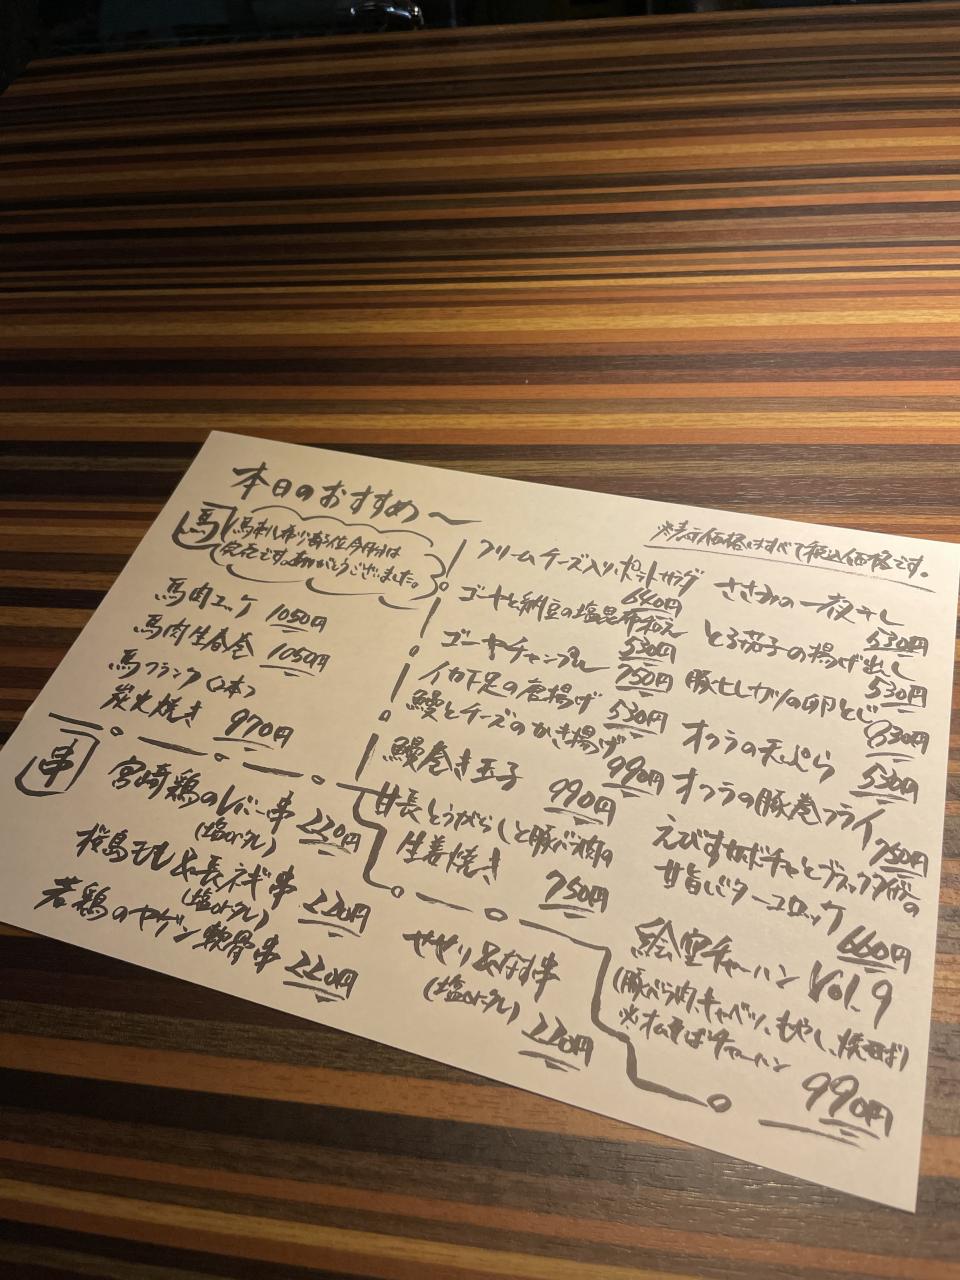 本日のおすすめ〜
※表示価格はすべて税込価格です。
馬
馬刺し希少部位今月分は
完売です。ありがとうございました。
馬肉ユッケ 1050円
馬肉生春巻 1050円
馬フランク(2本)
炭火焼き 970円
串
宮崎鶏のレバー串
(塩orタレ) 220円
桜島どり&長ネギ串
(塩orタレ) 220円
若鶏のヤゲン軟骨串 220円
せせり&なす串
(塩orタレ) 220円
クリームチーズ入りポテトサラダ
640円
ゴーヤと納豆の塩昆布和え
530円
ゴーヤチャンプルー 750円
イカ下足の唐揚げ 530円
鰻とチーズのかき揚げ
990円
鰻巻き玉子 990円
甘長とうがらしと豚バラ肉の
生姜焼き 750円
ささみの一夜干し
530円
とろ茄子の揚げ出し
530円
豚ヒレカツの卵とじ
830円
オクラの天ぷら 530円
オクラの豚巻フライ
750円
えびすカボチャとブラック
甘旨バターユロック 660円
絵空チャーハン Vol.9
(豚バラ肉、キャベツ、もやし、焼そば)
※オムそばチャーハン
990円